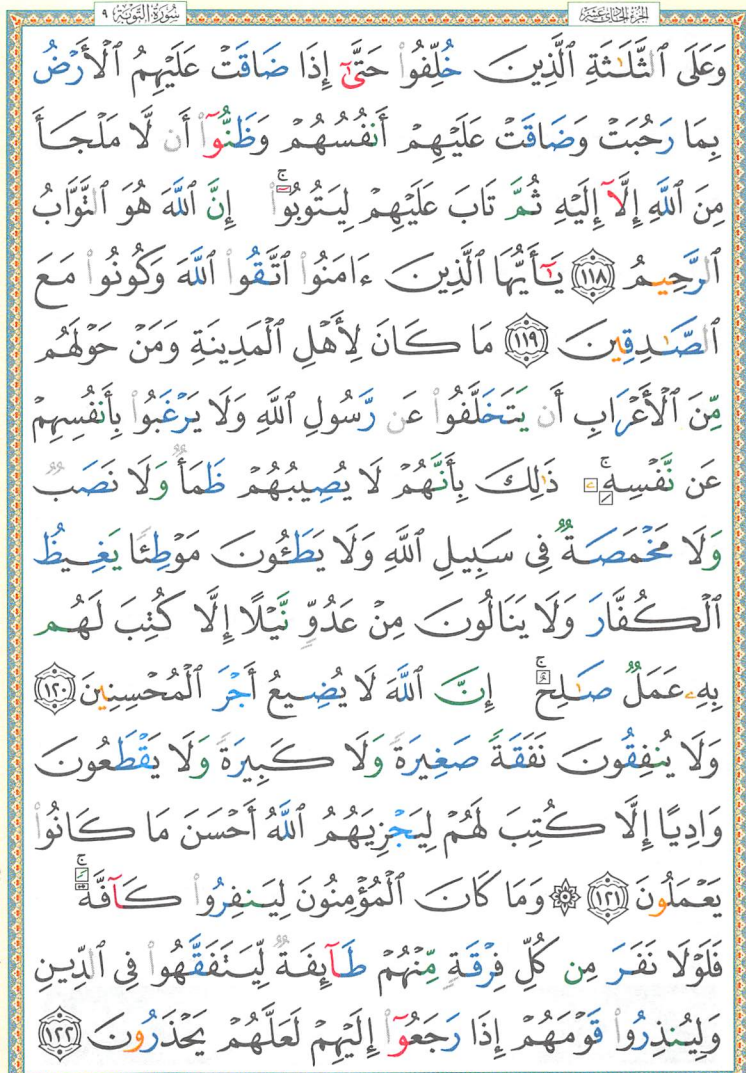 الجزء الحادي عشر
سُورَةُ التَّوۡبَةِ ٩
وَعَلَى ٱلثَّلَٰثَةِ ٱلَّذِينَ خُلِّفُواْ حَتَّىٰٓ إِذَا ضَاقَتۡ عَلَيۡهِمُ ٱلۡأَرۡضُ
بِمَا رَحُبَتۡ وَضَاقَتۡ عَلَيۡهِمۡ أَنفُسُهُمۡ وَظَنُّوٓاْ أَن لَّا مَلۡجَأَ
مِنَ ٱللَّهِ إِلَّآ إِلَيۡهِ ثُمَّ تَابَ عَلَيۡهِمۡ لِيَتُوبُوٓاْۚ إِنَّ ٱللَّهَ هُوَ ٱلتَّوَّابُ
ٱلرَّحِيمُ ١١٨ يَٰٓأَيُّهَا ٱلَّذِينَ ءَامَنُواْ ٱتَّقُواْ ٱللَّهَ وَكُونُواْ مَعَ
ٱلصَّٰدِقِينَ ١١٩ مَا كَانَ لِأَهۡلِ ٱلۡمَدِينَةِ وَمَنۡ حَوۡلَهُم
مِّنَ ٱلۡأَعۡرَابِ أَن يَتَخَلَّفُواْ عَن رَّسُولِ ٱللَّهِ وَلَا يَرۡغَبُواْ بِأَنفُسِهِمۡ
عَن نَّفۡسِهِۦۚ ذَٰلِكَ بِأَنَّهُمۡ لَا يُصِيبُهُمۡ ظَمَأٞ وَلَا نَصَبٞ
وَلَا مَخۡمَصَةٞ فِي سَبِيلِ ٱللَّهِ وَلَا يَطَـُٔونَ مَوۡطِئٗا يَغِيظُ
ٱلۡكُفَّارَ وَلَا يَنَالُونَ مِنۡ عَدُوّٖ نَّيۡلًا إِلَّا كُتِبَ لَهُم
بِهِۦ عَمَلٞ صَٰلِحٌۚ إِنَّ ٱللَّهَ لَا يُضِيعُ أَجۡرَ ٱلۡمُحۡسِنِينَ ١٢٠
وَلَا يُنفِقُونَ نَفَقَةٗ صَغِيرَةٗ وَلَا كَبِيرَةٗ وَلَا يَقۡطَعُونَ
وَادِيًا إِلَّا كُتِبَ لَهُمۡ لِيَجۡزِيَهُمُ ٱللَّهُ أَحۡسَنَ مَا كَانُواْ
يَعۡمَلُونَ ١٢١ ۞ وَمَا كَانَ ٱلۡمُؤۡمِنُونَ لِيَنفِرُواْ كَآفَّةٗۚ
فَلَوۡلَا نَفَرَ مِن كُلِّ فِرۡقَةٖ مِّنۡهُمۡ طَآئِفَةٞ لِّيَتَفَقَّهُواْ فِي ٱلدِّينِ
وَلِيُنذِرُواْ قَوۡمَهُمۡ إِذَا رَجَعُوٓاْ إِلَيۡهِمۡ لَعَلَّهُمۡ يَحۡذَرُونَ ١٢٢